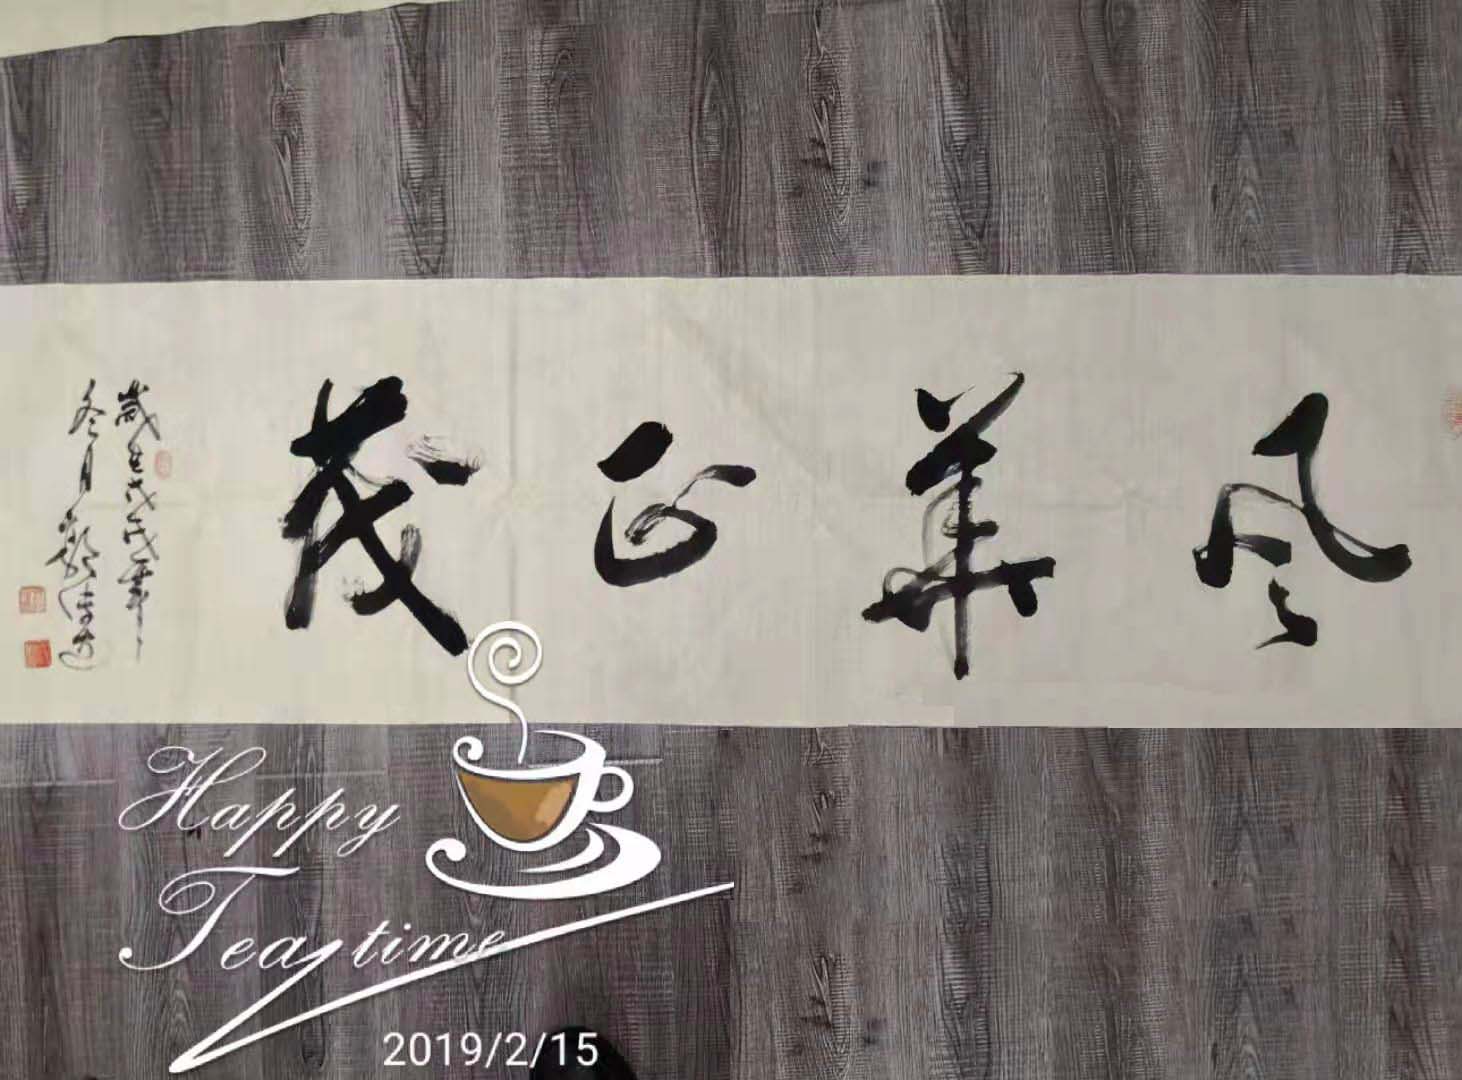 风华正茂
岁在戊戌年
冬月
Happy
Tea time
2019/2/15